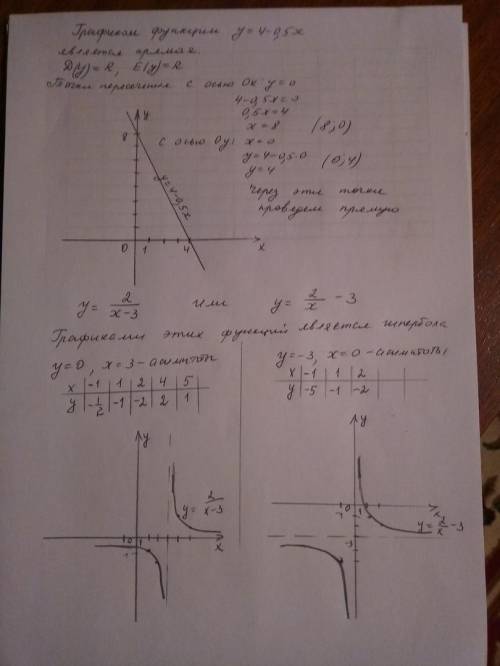 Графиком функции y = 4-0,5x
является прямая.
D(y)=R, E(y)=R
Точки пересечения с осью Ox: y=0
4-0,5x=0
0,5x=4
x=8 (8;0)
с осью Oy: x=0
y=4-0,5·0 (0;4)
y=4
Через эти точки
проведем прямую
y
8
y=4-0,5x
0 1 4 x
y = 2/(x-3) или y = 2/x - 3
Графиками этих функций является гипербола
y=0, x=3 - асимптоты
x -1 1 2 4 5
y -1/2 -1 -2 2 1
y
y = 2/(x-3)
0
x
-1
y=-3, x=0 - асимптоты
x -1 1 2
y -5 -1 -2
y
-1 0 1 x
y = 2/x - 3
-3